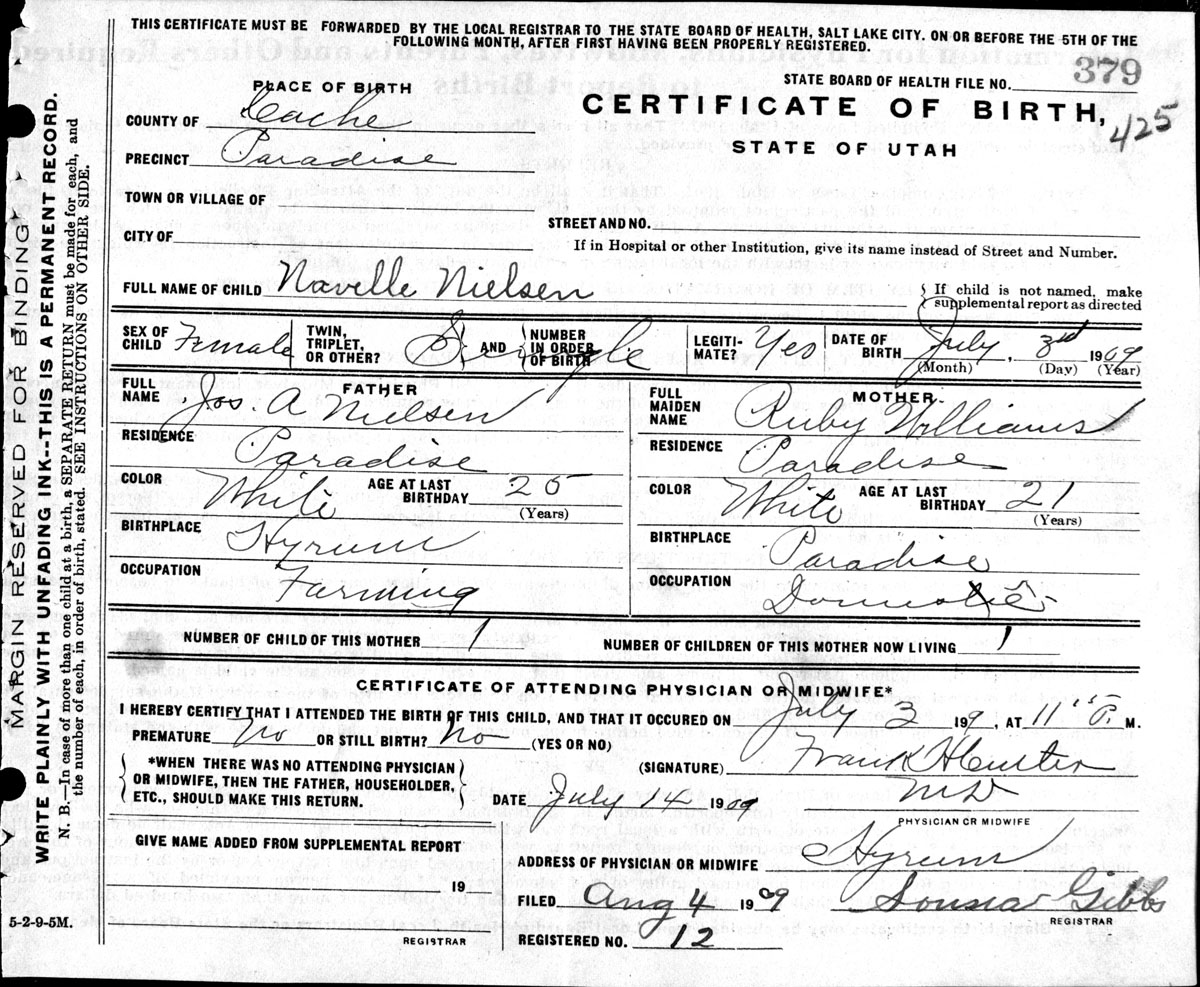 THIS CERTIFICATE MUST BE FORWARDED BY THE LOCAL REGISTRAR TO THE STATE BOARD OF HEALTH, SALT LAKE CITY. ON OR BEFORE THE 5TH OF THE
FOLLOWING MONTH, AFTER FIRST HAVING BEEN PROPERLY REGISTERED.
STATE BOARD OF HEALTH FILE NO. 379
PLACE OF BIRTH
CERTIFICATE OF BIRTH, 425
COUNTY OF Cache
STATE OF UTAH
PRECINCT Paradise
TOWN OR VILLAGE OF
STREET AND NO.
CITY OF
If in Hospital or other Institution, give its name instead of Street and Number.
FULL NAME OF CHILD Navelle Nielsen
If child is not named, make
supplemental report as directed
SEX OF CHILD Female TWIN, TRIPLET, OR OTHER? Single AND NUMBER IN ORDER OF BIRTH LEGITI-MATE? Yes DATE OF BIRTH July, 3rd 1909
(Month) (Day) (Year)
FATHER
FULL NAME Jos. A Nielsen
RESIDENCE Paradise
COLOR White AGE AT LAST BIRTHDAY 25
(Years)
BIRTHPLACE Hyrum
OCCUPATION Farming
MOTHER
FULL MAIDEN NAME Ruby Williams
RESIDENCE Paradise
COLOR White AGE AT LAST BIRTHDAY 21
(Years)
BIRTHPLACE Paradise
OCCUPATION Domestic
NUMBER OF CHILD OF THIS MOTHER 1 NUMBER OF CHILDREN OF THIS MOTHER NOW LIVING 1
CERTIFICATE OF ATTENDING PHYSICIAN OR MIDWIFE*
I HEREBY CERTIFY THAT I ATTENDED THE BIRTH OF THIS CHILD, AND THAT IT OCCURED ON July 3 199, AT 11 P. M.
PREMATURE No OR STILL BIRTH? No (YES OR NO)
*WHEN THERE WAS NO ATTENDING PHYSICIAN
OR MIDWIFE, THEN THE FATHER, HOUSEHOLDER,
ETC., SHOULD MAKE THIS RETURN.
(SIGNATURE) Frank
DATE July 14 1909 MD
PHYSICIAN OR MIDWIFE
GIVE NAME ADDED FROM SUPPLEMENTAL REPORT
ADDRESS OF PHYSICIAN OR MIDWIFE Hyrum
19
FILED Aug 4 1909 Gibbs
REGISTRAR
REGISTERED NO. 12
REGISTRAR
5-2-9-5M.
MARGIN RESERVED FOR BINDING
WRITE PLAINLY WITH UNFADING INK--THIS IS A PERMANENT RECORD.
N. B.—In case of more than one child at a birth, a SEPARATE RETURN must be made for each, and
the number of each, in order of birth, stated. SEE INSTRUCTIONS ON OTHER SIDE.